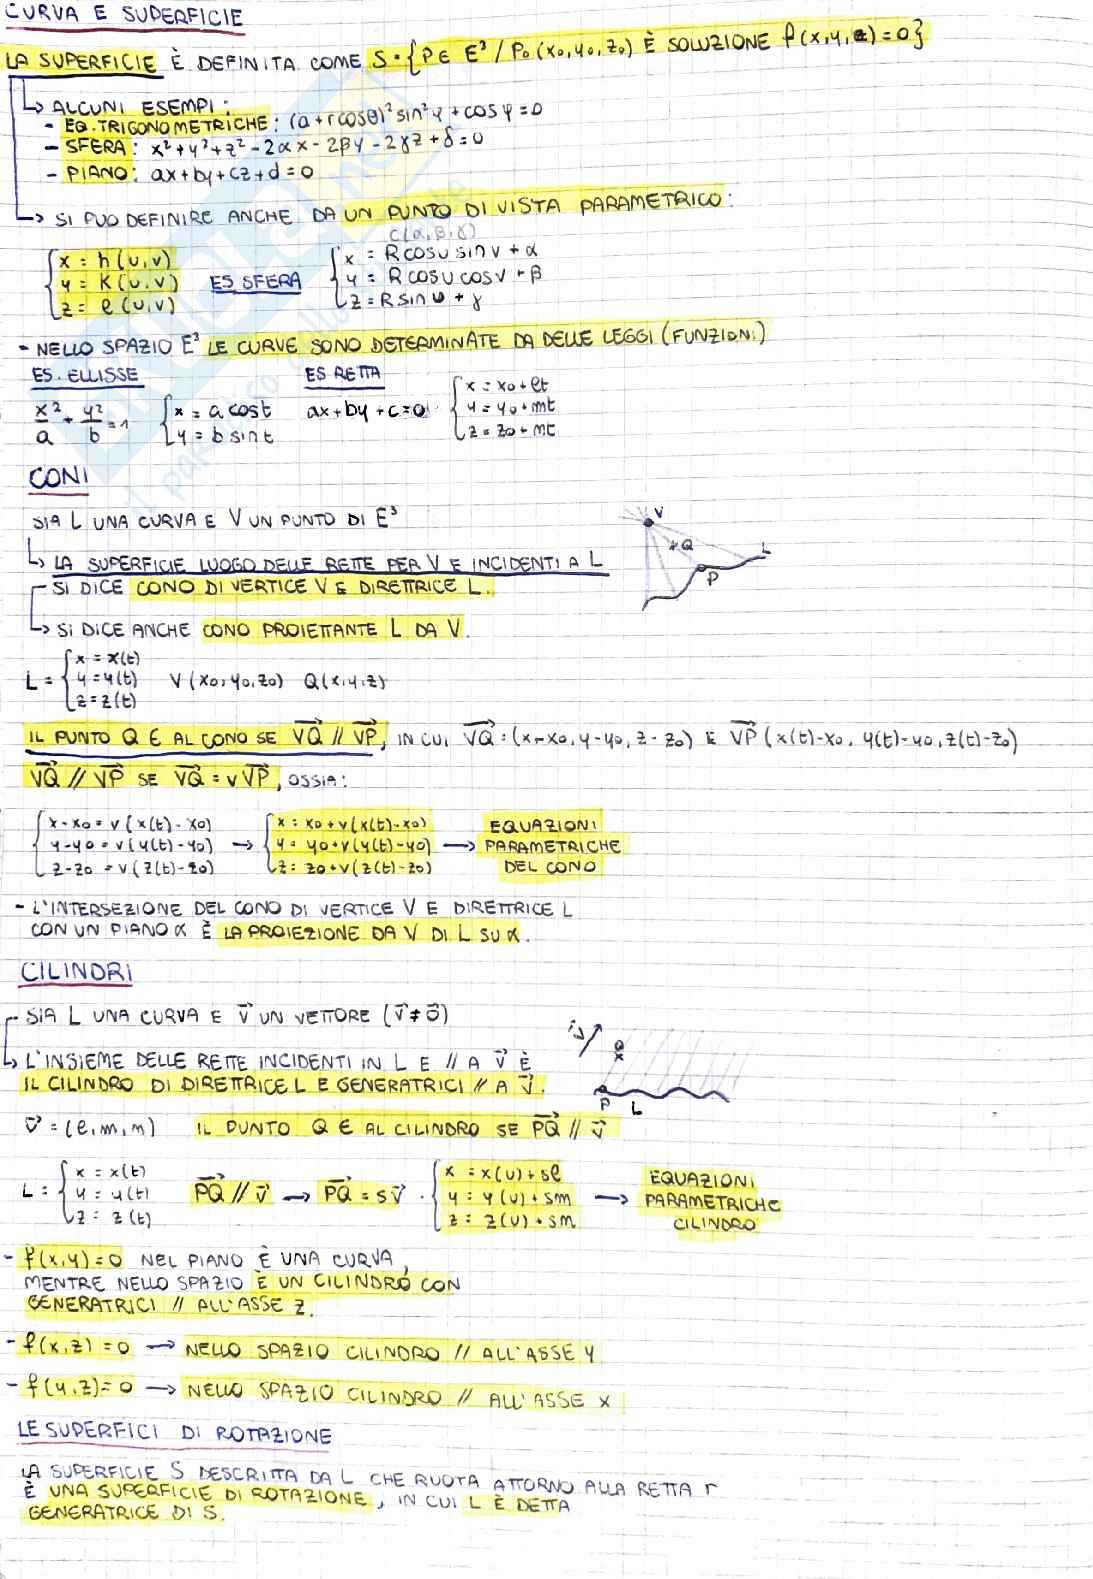 CURVA E SUPERFICIE
LA SUPERFICIE È DEFINITA COME S = {P ∈ E³ / P₀(x₀,y₀,z₀) È SOLUZIONE f(x,y,z)=0}
↳ ALCUNI ESEMPI:
- EQ. TRIGONOMETRICHE: (a+rcosθ)² sin²φ + cosφ = 0
- SFERA: x²+y²+z²-2αx-2βy-2γz+δ=0
- PIANO: ax+by+cz+d=0
→ SI PUO DEFINIRE ANCHE DA UN PUNTO DI VISTA PARAMETRICO:
C(α,β,γ)
{x = h(u,v) {x = Rcosu sinv + α
{y = K(u,v) ES SFERA {y = Rcosu cosv + β
{z = l(u,v) {z = Rsinu + γ
- NELLO SPAZIO E³ LE CURVE SONO DETERMINATE DA DELLE LEGGI (FUNZIONI)
ES. ELLISSE ES RETTA
x²/a + y²/b = 1 {x = a cost {y = b sint ax+by+c=0 {x = x₀+lt {y = y₀+mt {z = z₀+mt
CONI
SIA L UNA CURVA E V UN PUNTO DI E³
↳ LA SUPERFICIE LUOGO DELLE RETTE PER V E INCIDENTI A L
SI DICE CONO DI VERTICE V E DIRETTRICE L.
→ SI DICE ANCHE CONO PROIETTANTE L DA V.
V
Q
L
P
L = {x = x(t) {y = y(t) {z = z(t) V(x₀,y₀,z₀) Q(x,y,z)
IL PUNTO Q ∈ AL CONO SE VQ // VP, IN CUI VQ: (x-x₀, y-y₀, z-z₀) E VP (x(t)-x₀, y(t)-y₀, z(t)-z₀)
VQ // VP SE VQ = vVP, OSSIA:
{x-x₀ = v(x(t)-x₀) {x = x₀+v(x(t)-x₀) EQUAZIONI
{y-y₀ = v(y(t)-y₀) → {y = y₀+v(y(t)-y₀) → PARAMETRICHE
{z-z₀ = v(z(t)-z₀) {z = z₀+v(z(t)-z₀) DEL CONO
- L'INTERSEZIONE DEL CONO DI VERTICE V E DIRETTRICE L
CON UN PIANO α È LA PROIEZIONE DA V DI L SU α.
CILINDRI
SIA L UNA CURVA E v⃗ UN VETTORE (v⃗ ≠ 0⃗)
↳ L'INSIEME DELLE RETTE INCIDENTI IN L E // A v⃗ È
IL CILINDRO DI DIRETTRICE L E GENERATRICI // A v⃗.
v⃗
Q
P L
v⃗ = (l,m,n) IL PUNTO Q ∈ AL CILINDRO SE PQ // v⃗
{x = x(t) {x = x(u)+sl EQUAZIONI
L = {y = y(t) PQ // v⃗ → PQ = sv⃗ {y = y(u)+sm → PARAMETRICHE
{z = z(t) {z = z(u)+sm CILINDRO
- f(x,y)=0 NEL PIANO È UNA CURVA,
MENTRE NELLO SPAZIO È UN CILINDRO CON
GENERATRICI // ALL'ASSE Z.
- f(x,z)=0 → NELLO SPAZIO CILINDRO // ALL'ASSE Y
- f(y,z)=0 → NELLO SPAZIO CILINDRO // ALL'ASSE X
LE SUPERFICI DI ROTAZIONE
LA SUPERFICIE S DESCRITTA DA L CHE RUOTA ATTORNO ALLA RETTA r
È UNA SUPERFICIE DI ROTAZIONE, IN CUI L È DETTA
GENERATRICE DI S.